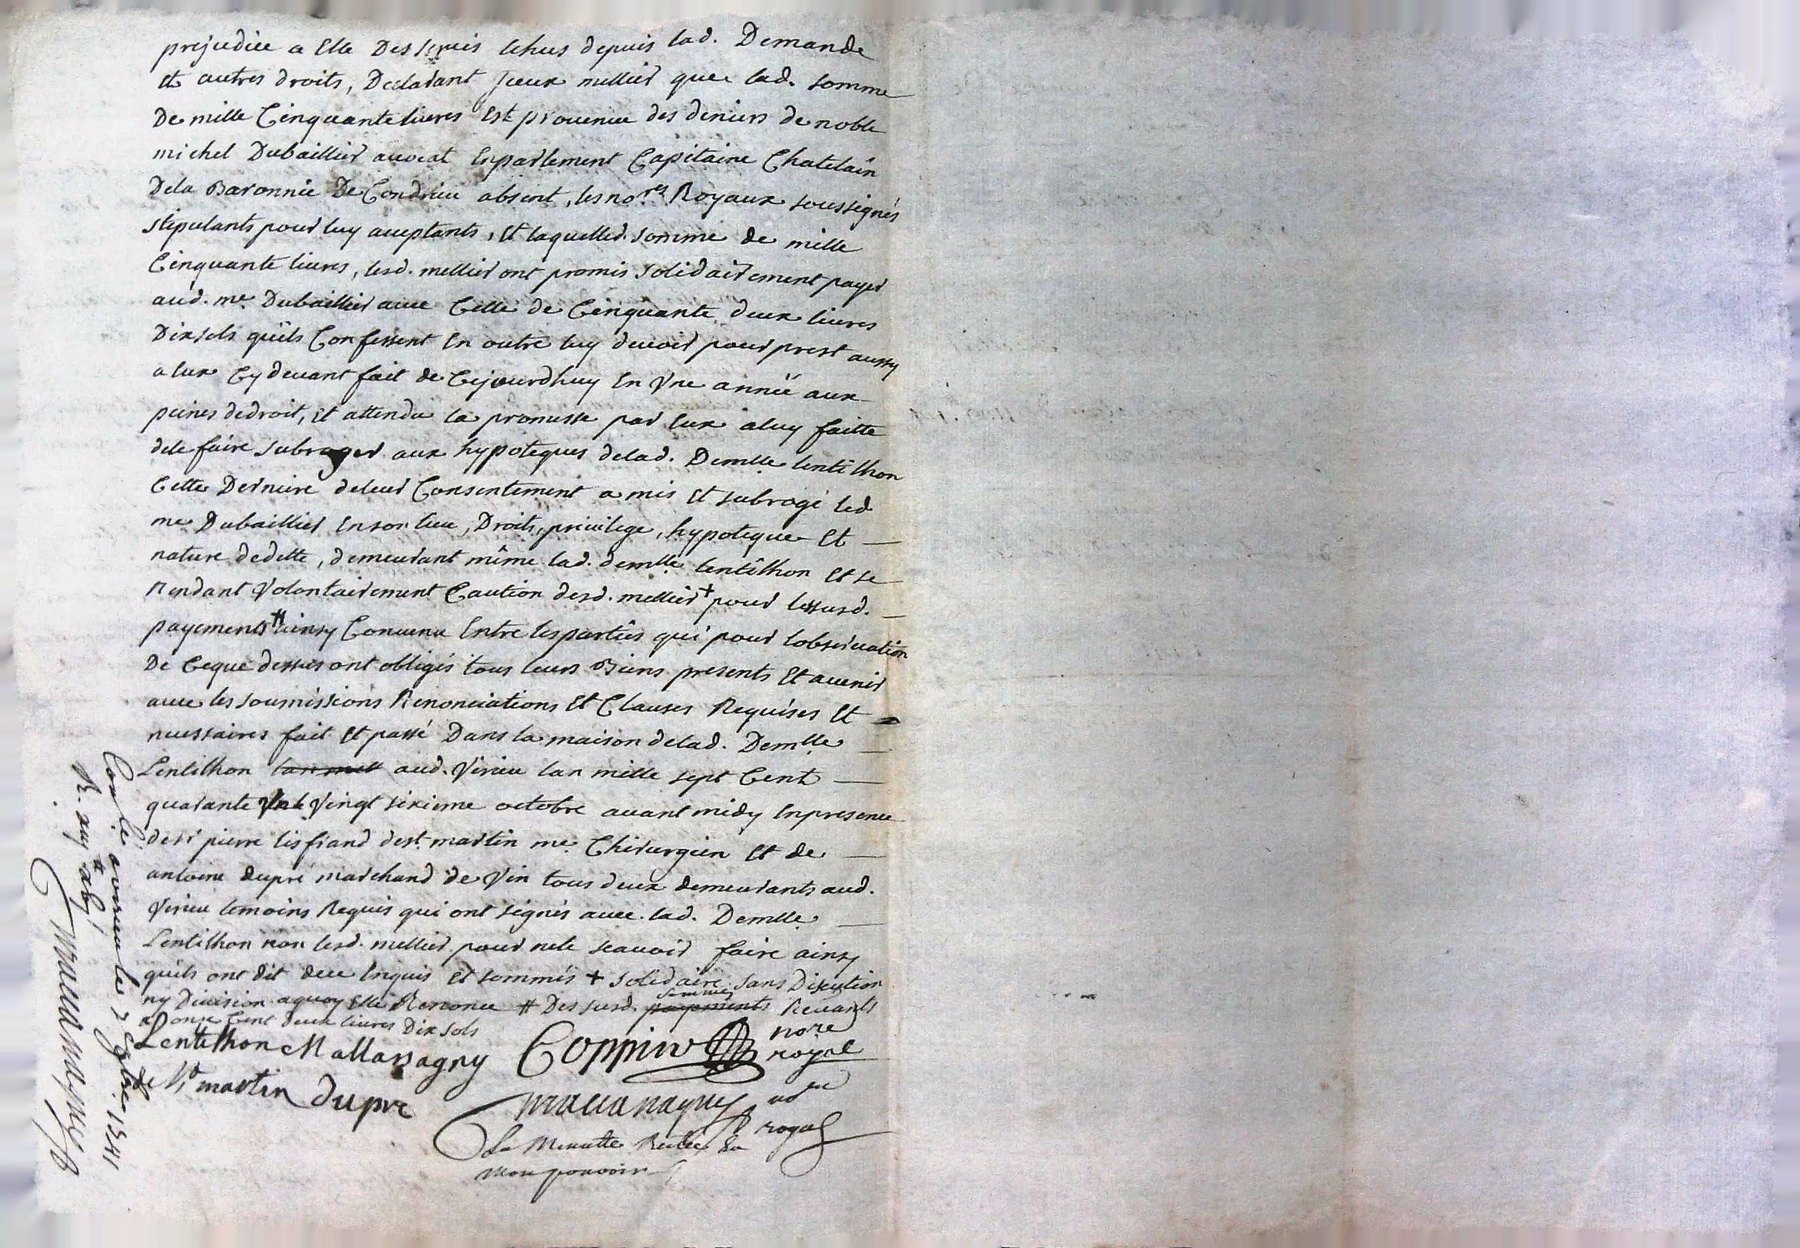 prejudice a Elle Des Interets Echus depuis lad. Demande
et autres droits, Declarant Iceux mellier que lad. somme
De mille Cinquante livres Est provenue des deniers de noble
michel Dubaillier avocat Enparlement Capitaine Chatelain
Dela Baronnie De Condrieu absent, les no.res Royaux soussignés
stipulants pour luy acceptants, Et laquelled. somme de mille
Cinquante livres, lesd. mellier ont promis solidairement payer
aud. me Dubaillier avec Celle de Cinquante deux livres
Dix sols quils Confessent En outre luy devoir pour prest aussy
a Eux Cy devant fait de Cejourdhuy En Une année aux
peines dedroit, Et attendu la promesse par Eux aluy faitte
dele faire subroger aux hypoteques delad. Demlle Lentilhon
Cette Derniere deleur Consentement a mis Et subrogé led.
me Dubaillier Enson lieu, Droits, privilege, hypoteque Et
nature dedette, demeurant même lad. demlle Lentilhon Et se
Rendant Volontairement Caution desd. mellier + pour lessusd.
payements # ainsy Convenu Entre lesparties qui pour lobservation
De Ceque dessus ont obligés tous leurs Biens presents Et avenir
avec les soumissions Renonciations Et Clauses Requises Et
necessaires fait Et passé Dans la maison delad. Demlle
Lentilhon aud. Virieu Lan mille sept Cent
quarante Un Vingt sixieme octobre avant midy Enpresence
desr pierre lisfrand dest. martin me. Chirurgien Et de
antoine dupré marchand de Vin tous deux demeurants aud.
Virieu temoins Requis qui ont signés avec lad. Demlle
Lentilhon non lesd. mellier pour nele scavoir faire ainsy
quils ont dit dece Enquis Et sommés + solidaire sans Discution
ny Division aquoy Elle Renonce # Des susd. sommes payements Revenants
a onze Cent deux livres Dix sols
Lentilhon Mallassagny Coppin nore royal
de st martin dupre
royal
La Minutte Restee En
mon pouvoir
Conlé a virieu le 7 9bre 1741
R. six